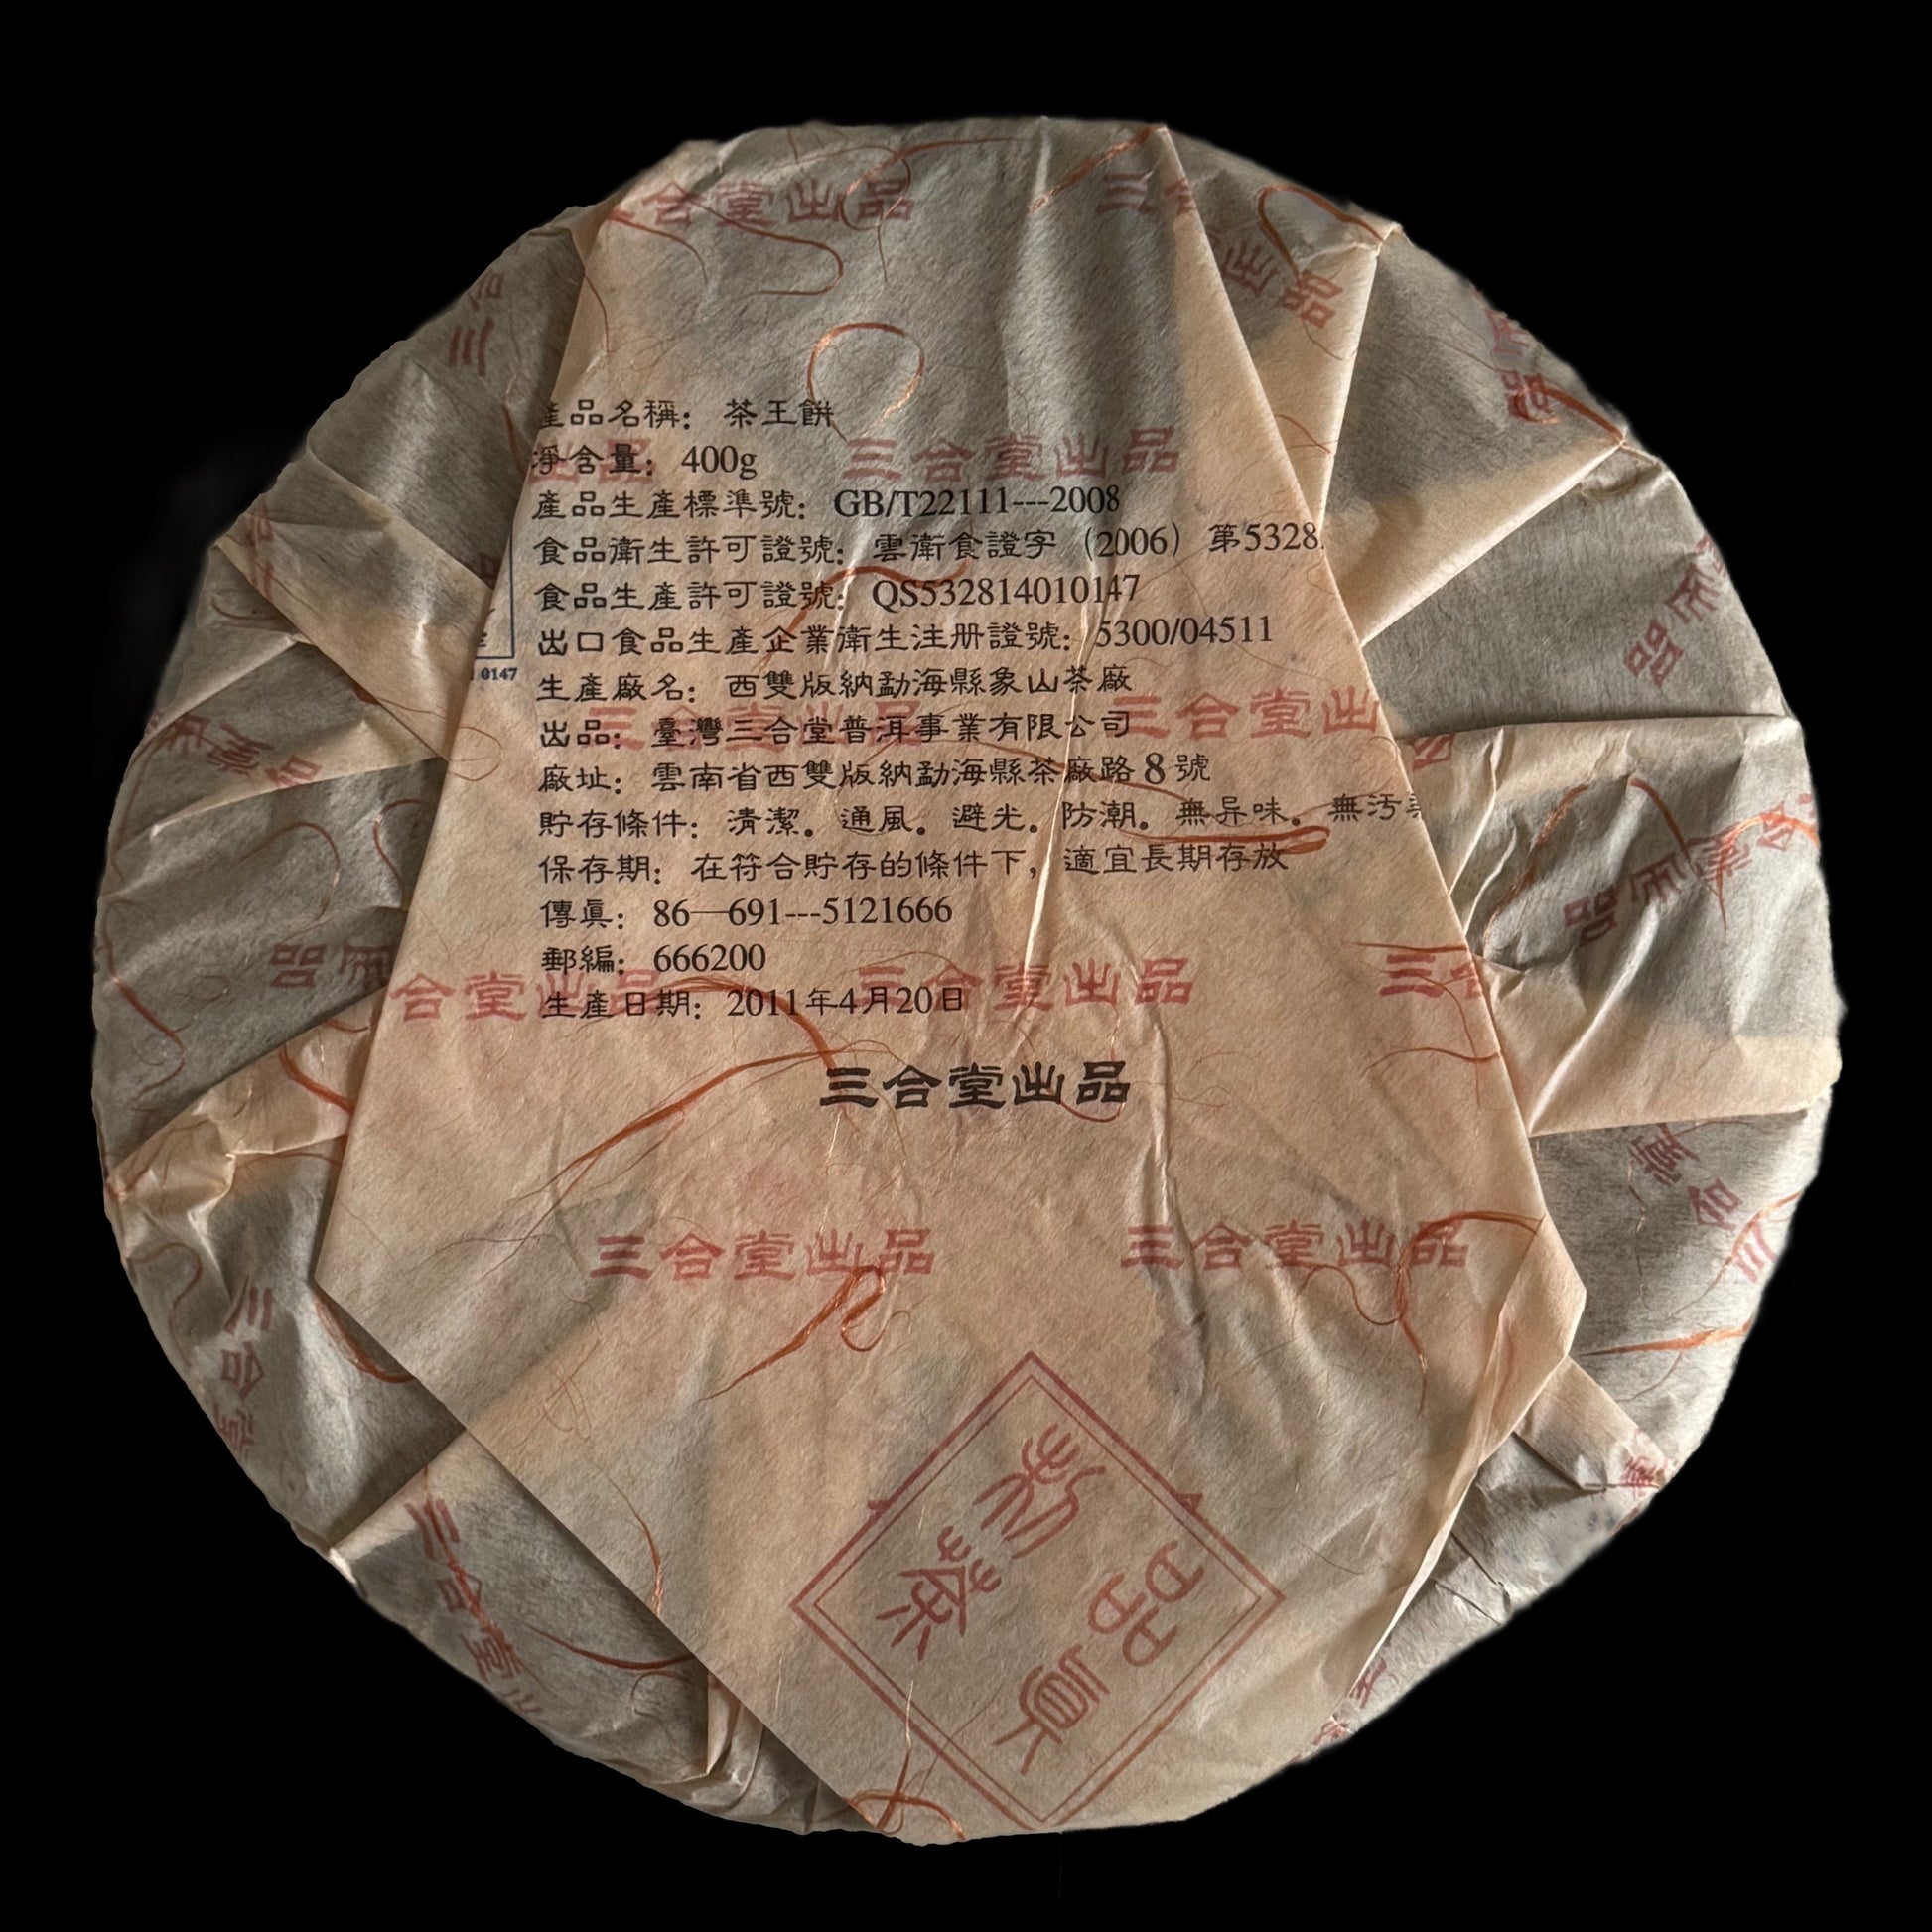 合堂出品
三
產品名稱：茶王餅
淨含量：400g
三合堂出品
產品生產標準號：GB/T22111---2008
食品衛生許可證號：雲衛食證字（2006）第5328
食品生產許可證號：QS532814010147
出口食品生產企業衛生注册證號：5300/04511
生產廠名：西雙版納勐海縣象山茶廠
0147
三合堂出品
三合堂出
出品：臺灣三合堂普洱事業有限公司
廠址：雲南省西雙版納勐海縣茶廠路8號
貯存條件：清潔。通風。避光。防潮。無异味。無汚
保存期：在符合貯存的條件下，適宜長期存放
傳真：86—691---5121666
郵編：666200
合堂出品
三合堂出品
三合
生產日期：2011年4月20日
三合堂出品
三合堂出品
三合堂出品
三合堂
三合堂